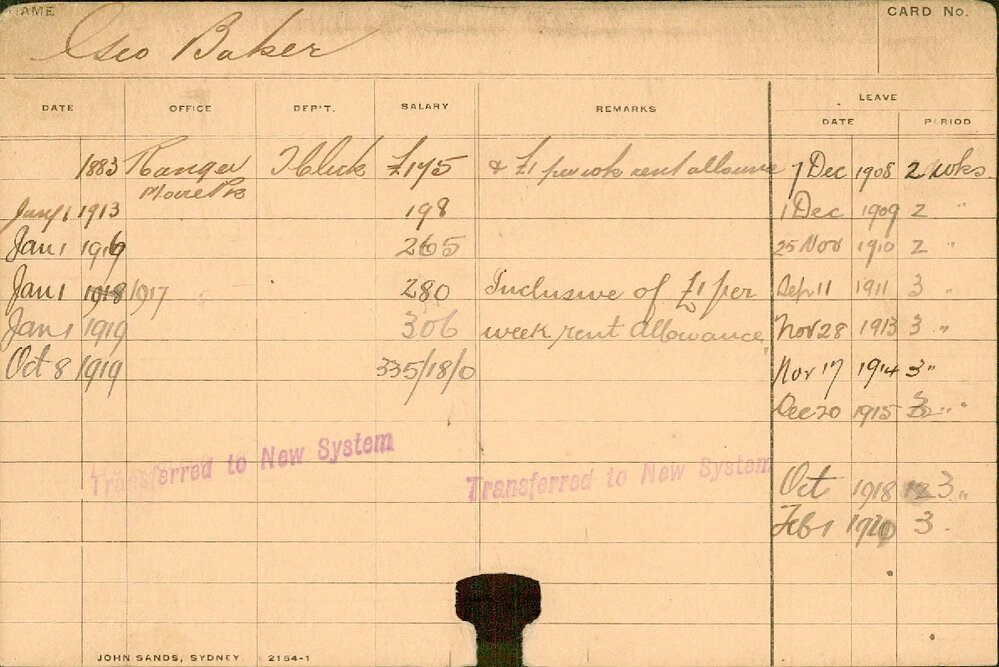 NAME
CARD No.
Geo Baker
DATE OFFICE DEP'T. SALARY REMARKS LEAVE
DATE PERIOD
1883 Ranger £175 & £1 per wk rent allowance 7 Dec 1908 2 wks
Moore Pk
Jany 1 1913 198 1 Dec 1909 2 "
Jan 1 1916 265 25 Nov 1910 2 "
Jan 1 1918 1917 280 Inclusive of £1 per Sep 11 1911 3 "
Jan 1 1919 306 week rent allowance Nov 28 1913 3 "
Oct 8 1919 335/18/0 Nov 17 1914 3 "
Dec 20 1915 "
Transferred to New System
Transferred to New System
Oct 1918 3 "
Feb 1 3
JOHN SANDS, SYDNEY 2154-1